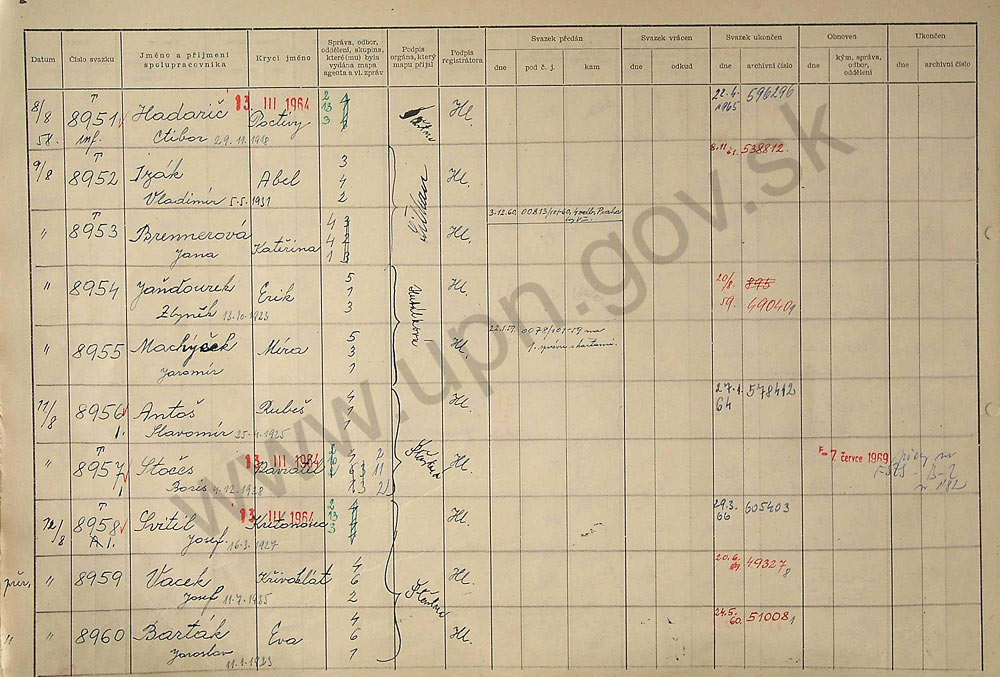 Datum
Číslo svazku
Jméno a příjmení
spolupracovníka
Krycí jméno
Správa, odbor,
oddělení, skupina,
které(mu) byla
vydána mapa
agenta a vl. zpráv
Podpis
orgána, který
mapu přijal
Podpis
registrátora
Svazek předán
dne
pod č. j.
kam
Svazek vrácen
dne
odkud
Svazek ukončen
dne
archivní číslo
Obnoven
dne
kým, správa,
odbor,
oddělení
Ukončen
dne
archivní číslo
8/8 T 8951 Hadarič 13. III 1964 Poctivý 2 13 3 Hl. 22.4. 1965 596296
58. inf. Ctibor 29.11.1918
9/8 T 8952 Izák Abel 3 4 2 Hl. 8.11.61. 538812.
Vladimír 5.5.1931
" T 8953 Brennerová Kateřina 4 3 4 2 1 3 Hl. 3.12.60, 00813/101-60, Praha
Jana
" 8954 Jaňdourek Erik 5 1 3 Hl. 20/8. 895
Zbyněk 13.10.1923 59. 49040 1
" 8955 Machýček Míra 5 3 1 Hl. 22.1.59. 0078/101-59 na
Jaromír 1. správu s kartami.
11/8 8956 Antoš Rubeš 4 1 1 Hl. 27.1. 64 578412
1. Slavomír 25.4.1925
" T 8957 Stočes 13. III 1964 Hl. - 7. července 1969
1 Boris 4.12.1928
12/8 T 8958 Svítil 13. III 1964 2 13 3 Hl. 29.3. 66 605403
A 1. Josef 16.3.1927
" 8959 Vacek Křivoklát 4 6 2 Hl. 20.6. 49327 8
Josef 11.7.1925
" " 8960 Barták Eva 4 6 1 Hl. 24.5. 60. 51008 1
Jaroslav 11.1.1923
www.upn.gov.sk